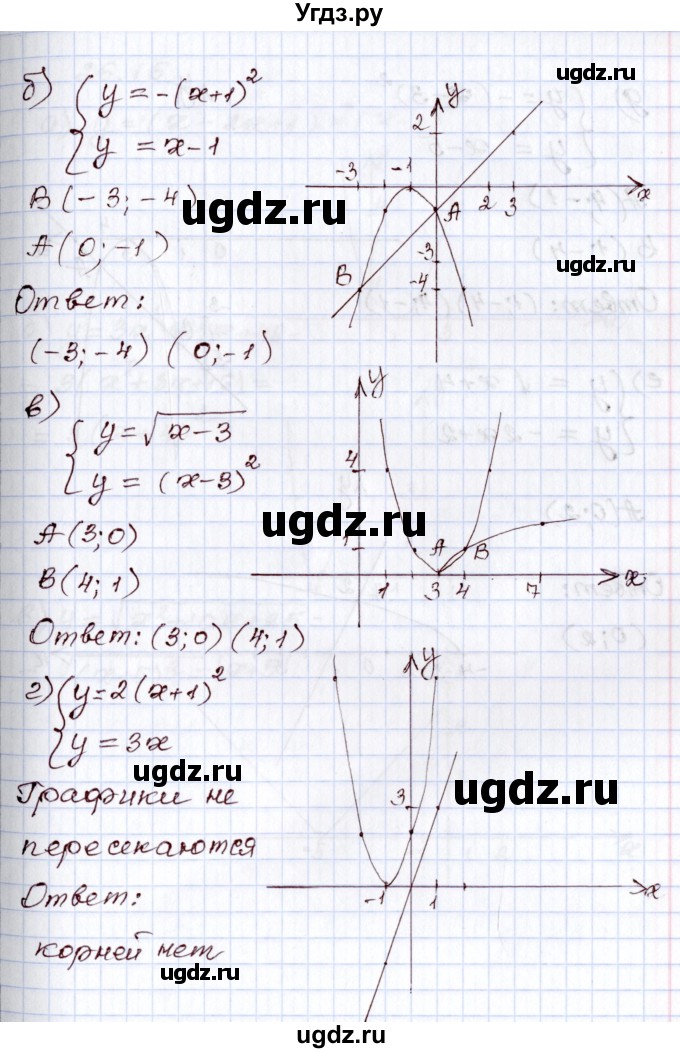 Угдз.ру
б) { y = -(x+1)²
y = x-1
B(-3; -4)
A(0; -1)
Ответ:
(-3; -4) (0; -1)
y
2
-3 -1 2 3 x
A
-3
B -4
в) { y = √x-3
y = (x-3)²
A(3; 0)
B(4; 1)
Ответ: (3; 0) (4; 1)
y
4
1 A B
1 3 4 7 x
г) { y = 2(x+1)²
y = 3x
Графики не
пересекаются
Ответ:
корней нет
y
3
-1 1 x
ugdz.ru
ugdz.ru
ugdz.ru
ugdz.ru
ugdz.ru
ugdz.ru
ugdz.ru
ugdz.ru
ugdz.ru
ugdz.ru
ugdz.ru